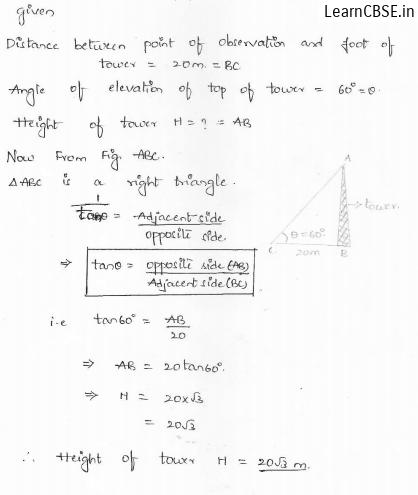 LearnCBSE.in
given
Distance between point of observation and foot of
tower = 20m. = BC
Angle of elevation of top of tower = 60° = θ.
Height of tower H = ? = AB
Now From Fig. ABC.
Δ ABC is a right triangle.
1/tanθ = Adjacent side/opposite side.
⇒ tanθ = opposite side (AB)/Adjacent side (BC)
i.e tan60° = AB/20
⇒ AB = 20tan60°.
⇒ H = 20x√3
= 20√3
∴ Height of tower H = 20√3 m.
A
tower.
θ=60°
C
20m
B